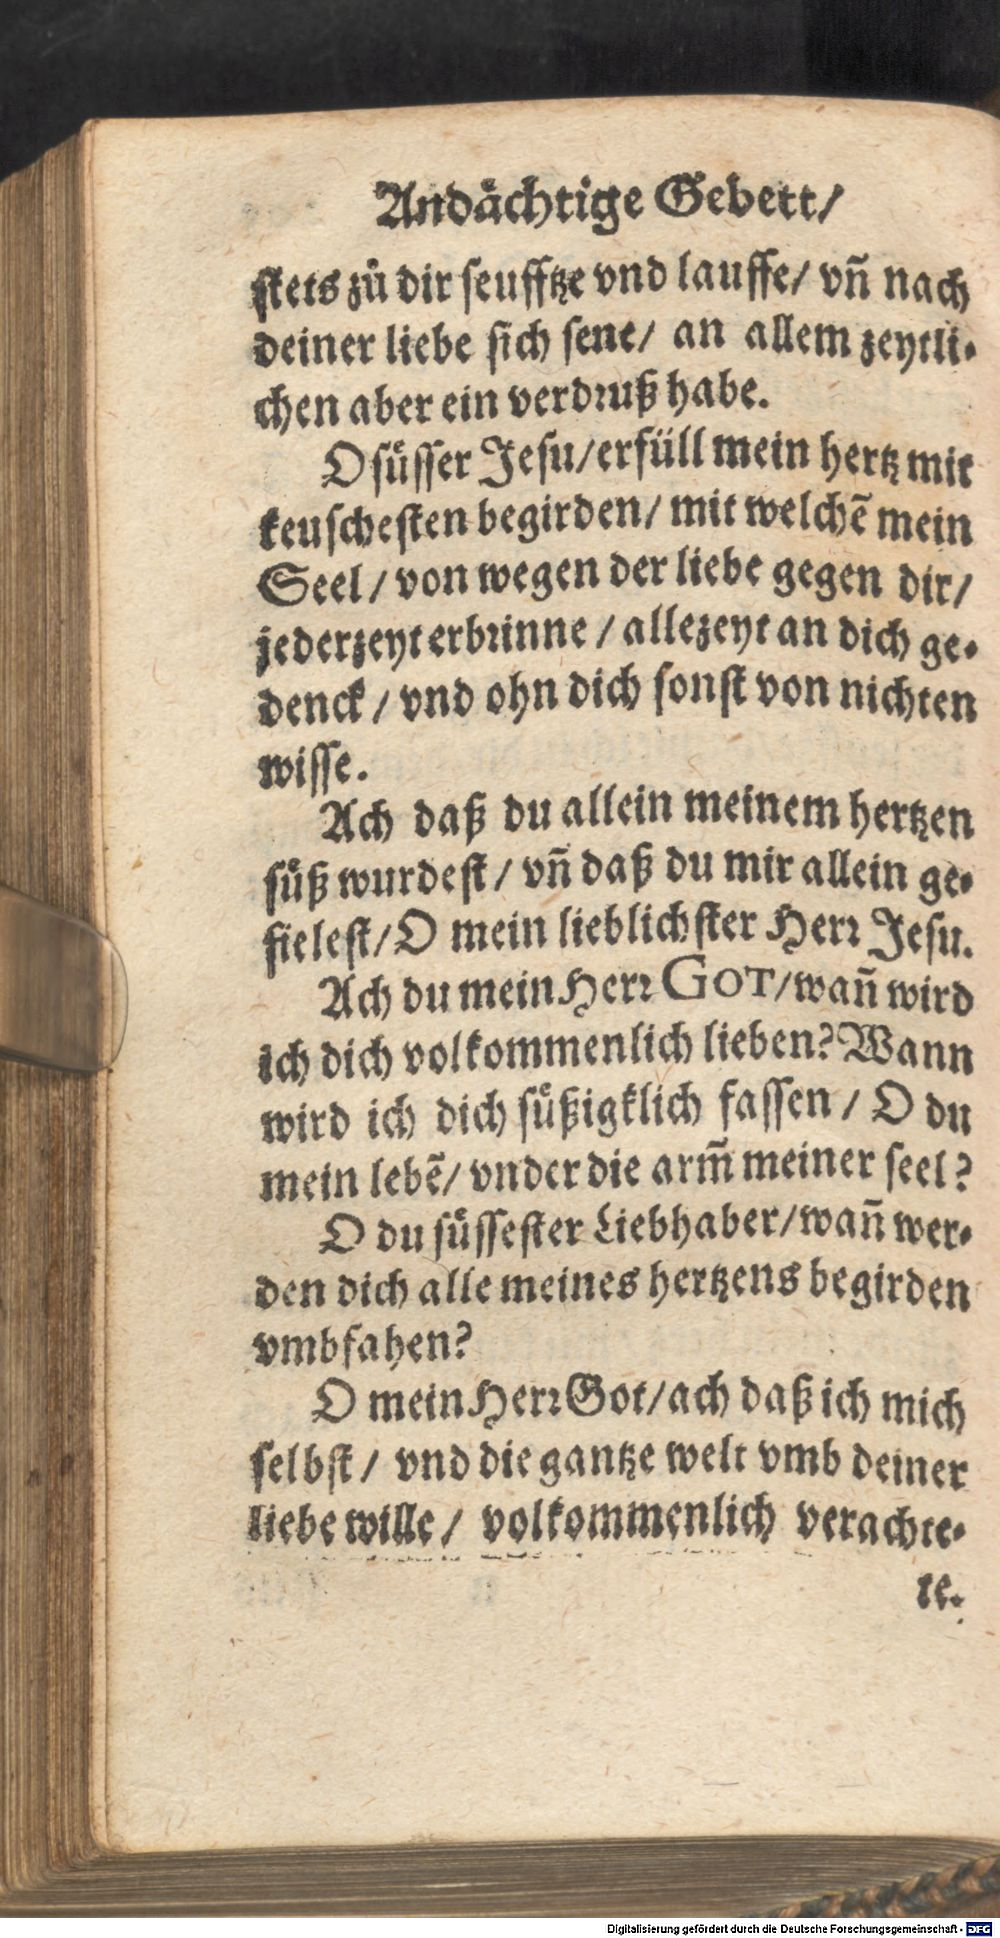 Andaͤchtige Gebett/
stets zuͦ dir seufftze vnd lauffe/ vñ nach
deiner liebe sich sene/ an allem zeytli-
chen aber ein verdruß habe.
O suͤsser Jesu/erfüll mein hertz mit
keuschesten begirden/ mit welchẽ mein
Seel/ von wegen der liebe gegen dir/
jederzeyt erbrinne / allezeyt an dich ge-
denck / vnd ohn dich sonst von nichten
wisse.
Ach daß du allein meinem hertzen
suͤß wurdest / vñ daß du mir allein ge-
fielest/ O mein lieblichster Herr Jesu.
Ach du mein Herr GOT/wañ wird
ich dich volkommenlich lieben? Wann
wird ich dich suͤßigklich fassen / O du
mein lebẽ/ vnder die arm̃ meiner seel?
O du suͤssester Liebhaber/wañ wer-
den dich alle meines hertzens begirden
vmbfahen?
O mein Herr Got/ach daß ich mich
selbst / vnd die gantze welt vmb deiner
liebe wille / volkommenlich verachte-
te.
Digitalisierung gefördert durch die Deutsche Forschungsgemeinschaft - DFG